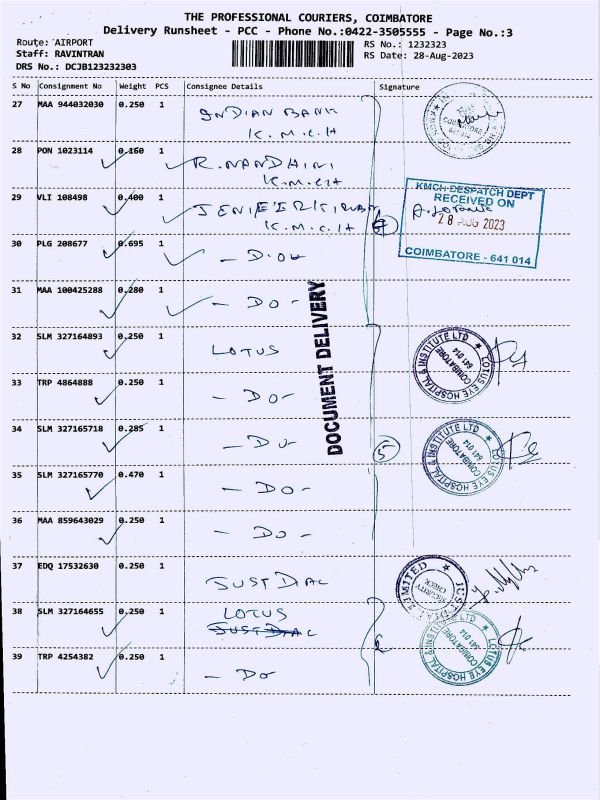 THE PROFESSIONAL COURIERS, COIMBATORE
Delivery Runsheet - PCC - Phone No.:0422-3505555 - Page No.:3
Route: AIRPORT
Staff: RAVINTRAN
DRS No.: DCJB123232303
RS No.: 1232323
RS Date: 28-Aug-2023
S No Consignment No Weight PCS Consignee Details Signature
27 MAA 944032030 0.250 1 INDIAN BANK
K.M.C.H
28 PON 1023114 0.160 1 R.NANDHINI
K.M.C.H
29 VLI 108498 0.400 1
K.M.C.H
KMCH DESPATCH DEPT
RECEIVED ON
28 AUG 2023
COIMBATORE - 641 014
30 PLG 208677 0.695 1 - DO -
31 MAA 100425288 0.280 1 - DO -
DOCUMENT DELIVERY
32 SLM 327164893 0.250 1 LOTUS
LOTUS EYE HOSPITAL & INSTITUTE LTD
COIMBATORE
641 014
33 TRP 4864888 0.250 1 - DO -
34 SLM 327165718 0.285 1 - DO -
5
LOTUS EYE HOSPITAL & INSTITUTE LTD
COIMBATORE
641 014
35 SLM 327165770 0.470 1 - DO -
36 MAA 859643029 0.250 1 - DO -
37 EDQ 17532630 0.250 1 JUST DIAL
JUST DIAL LIMITED
SECURITY
CHECK
38 SLM 327164655 0.250 1 LOTUS
JUST DIAL
LOTUS EYE HOSPITAL & INSTITUTE LTD
COIMBATORE
641 014
39 TRP 4254382 0.250 1 - DO